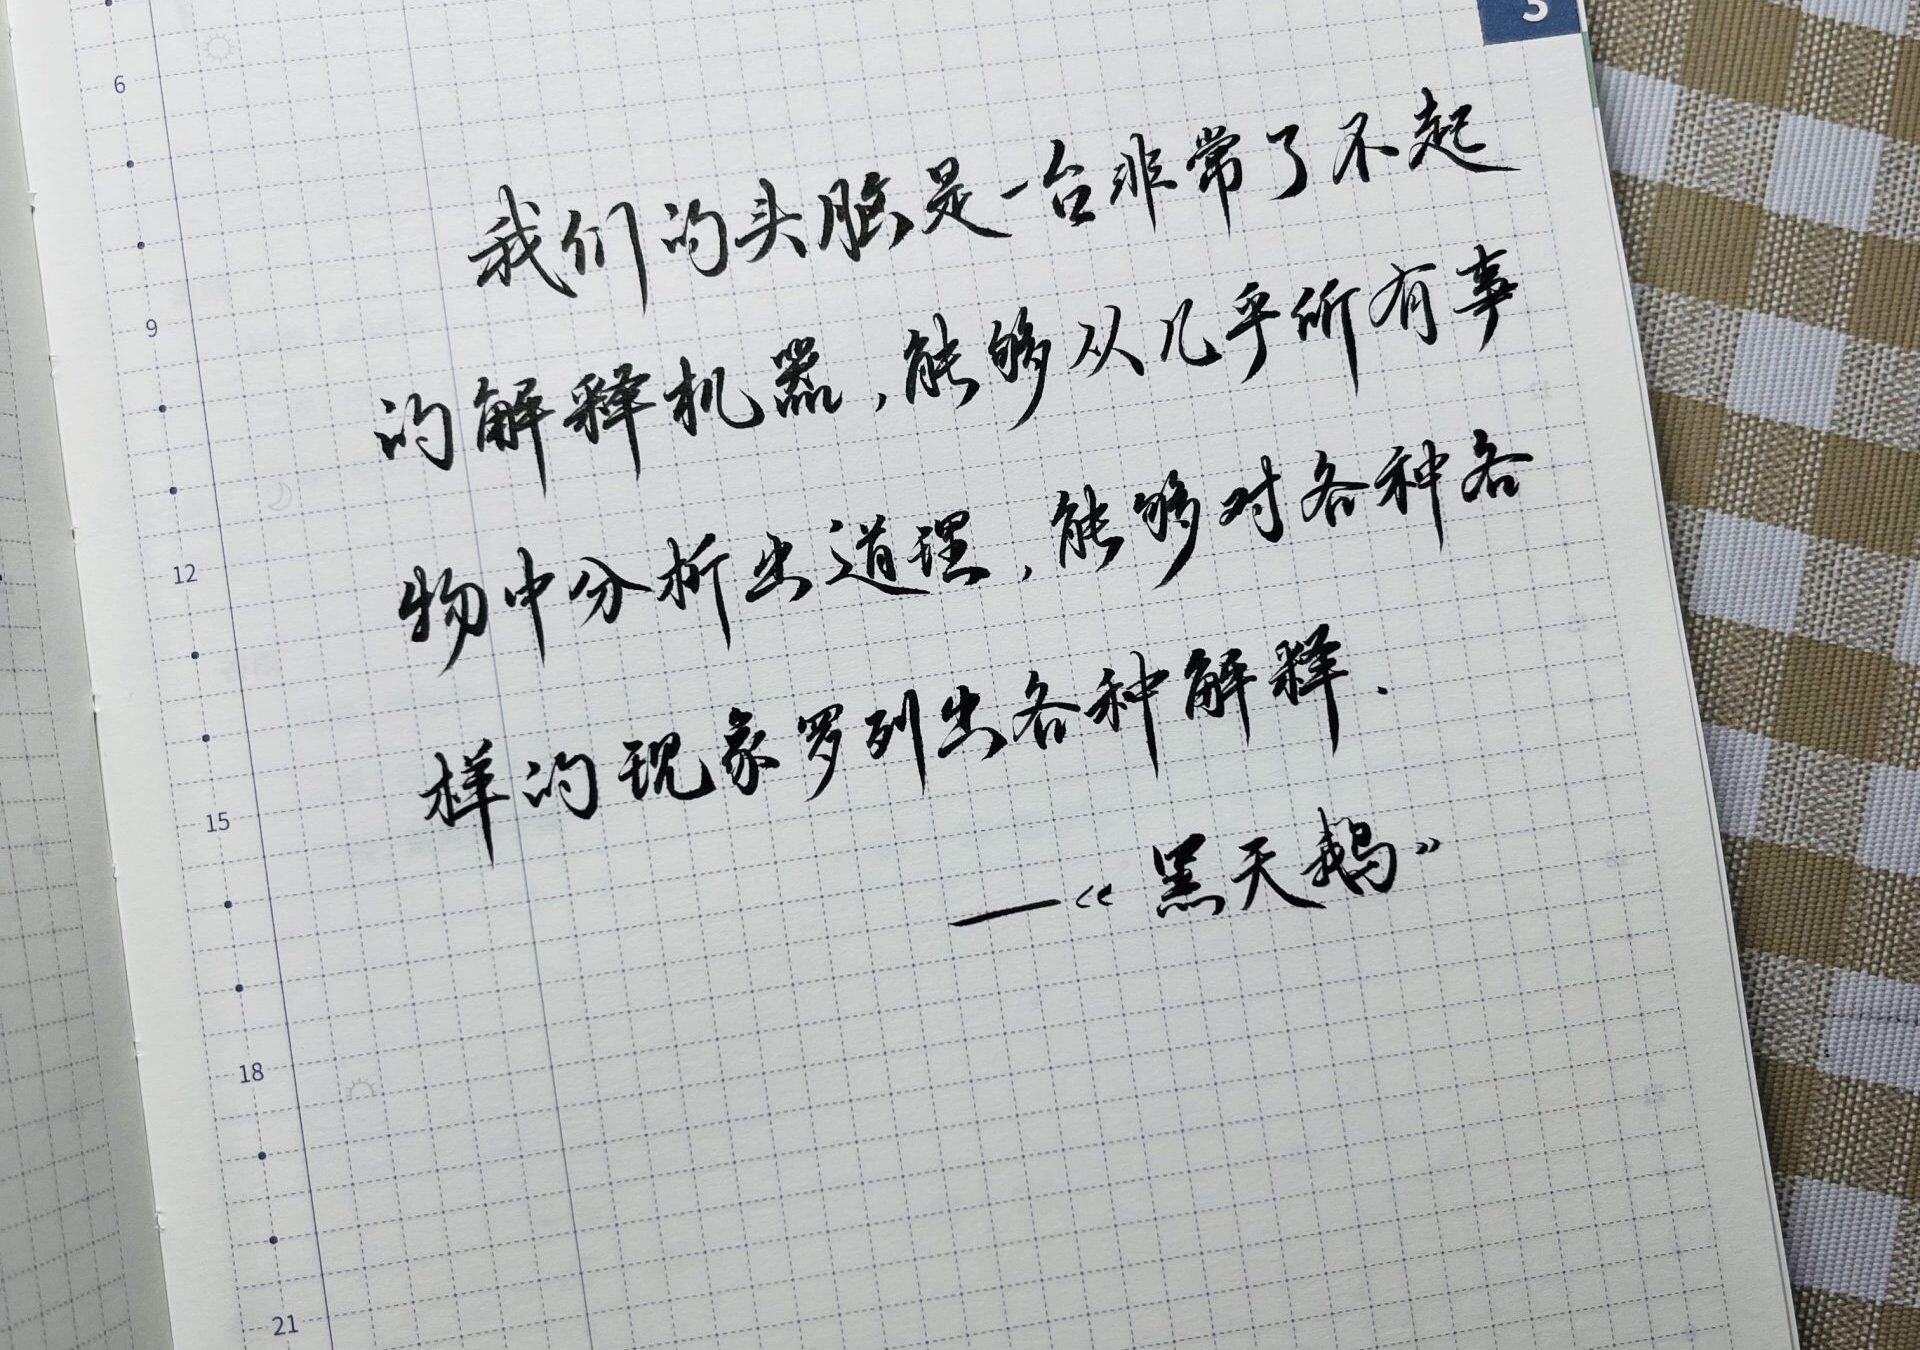 3
6
9
12
15
18
21
我们的头脑是一台非常了不起
的解释机器,能够从几乎所有事
物中分析出道理,能够对各种各
样的现象罗列出各种解释.
—《黑天鹅》